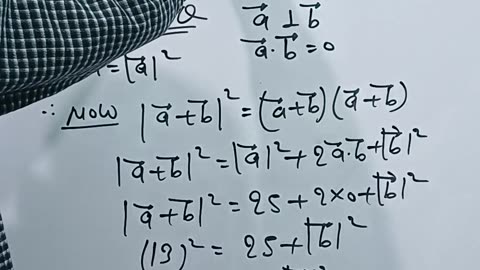 a⃗ ⊥ b⃗
a⃗ . b⃗ = 0
= |a⃗|²
∴ NOW |a⃗+b⃗|² = (a⃗+b⃗) (a⃗+b⃗)
|a⃗+b⃗|² = |a⃗|² + 2a⃗.b⃗ + |b⃗|²
|a⃗+b⃗|² = 25 + 2×0 + |b⃗|²
(13)² = 25 + |b⃗|²